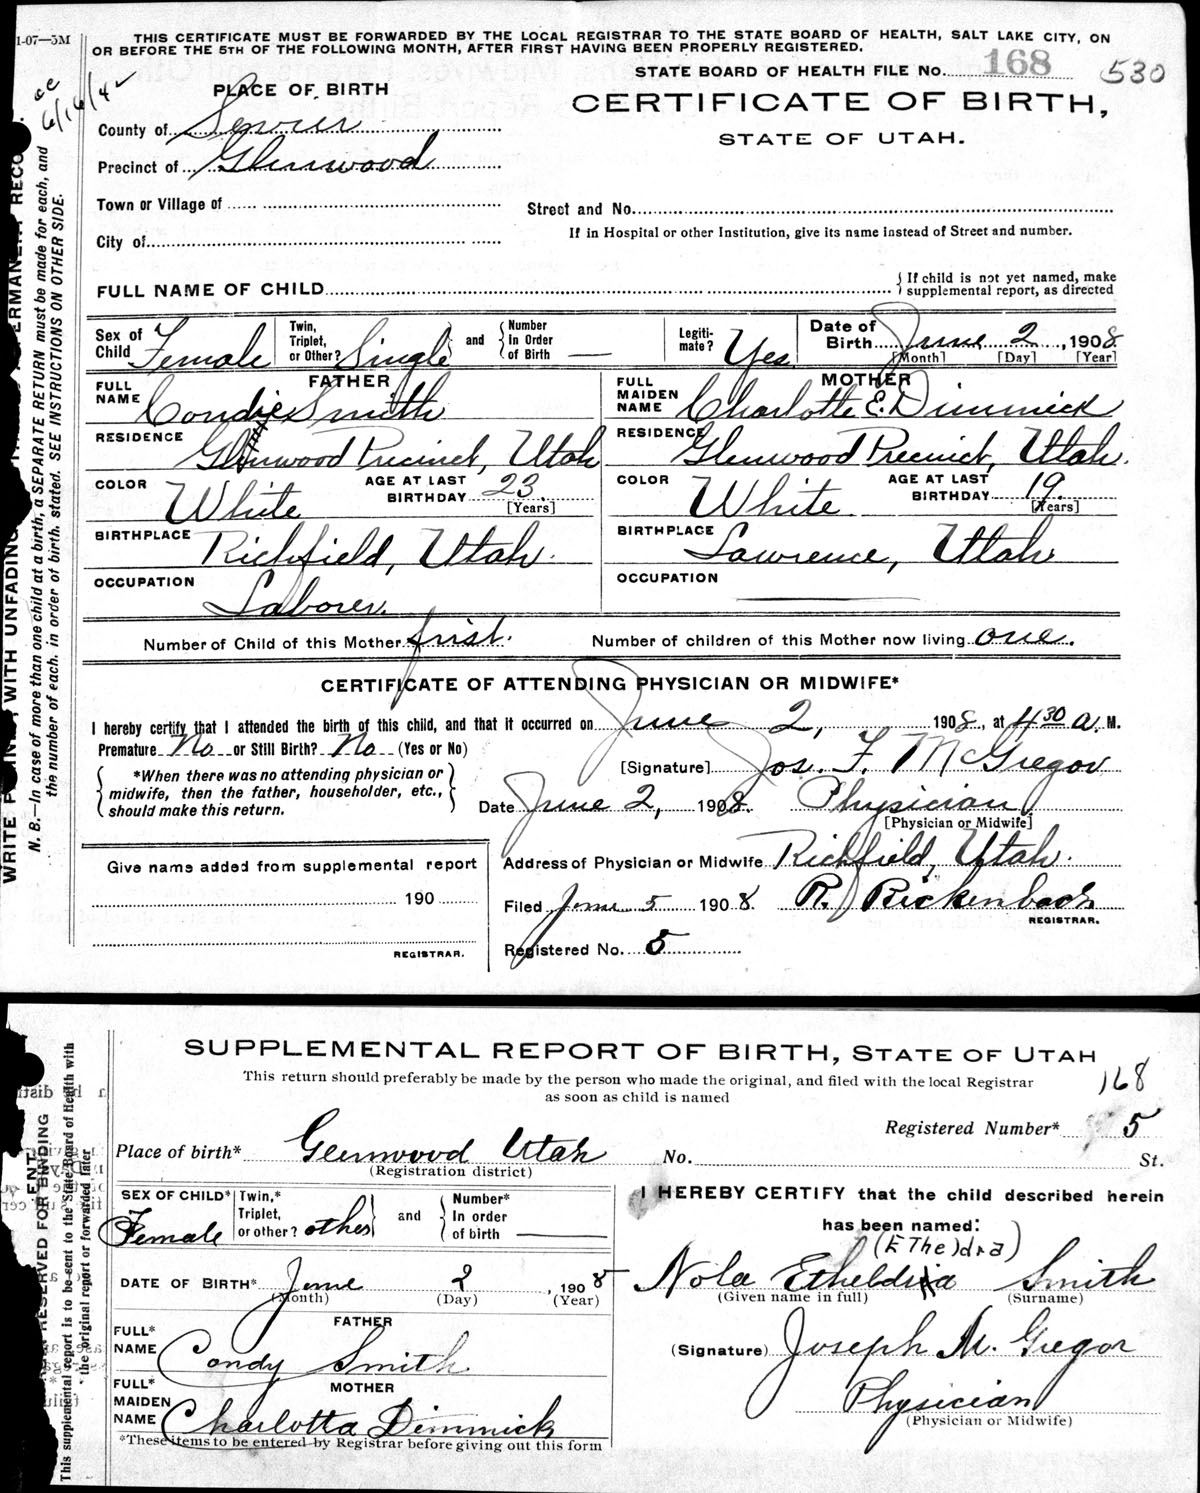 1-07—5M
THIS CERTIFICATE MUST BE FORWARDED BY THE LOCAL REGISTRAR TO THE STATE BOARD OF HEALTH, SALT LAKE CITY, ON
OR BEFORE THE 5TH OF THE FOLLOWING MONTH, AFTER FIRST HAVING BEEN PROPERLY REGISTERED.
STATE BOARD OF HEALTH FILE No. 168 530
6/16/42
PLACE OF BIRTH
CERTIFICATE OF BIRTH,
STATE OF UTAH.
County of Sevier
Precinct of Glenwood
Town or Village of
Street and No.
City of
If in Hospital or other Institution, give its name instead of Street and number.
FULL NAME OF CHILD
If child is not yet named, make
supplemental report, as directed
Sex of Child Female Twin, Triplet, or Other? Single and Number In Order of Birth — Legiti-mate? Yes Date of Birth June 2, 1908
[Month] [Day] [Year]
FATHER MOTHER
FULL NAME Condie Smith FULL MAIDEN NAME Charlotte E. Dimmick
RESIDENCE Glenwood Precinct, Utah RESIDENCE Glenwood Precinct, Utah.
COLOR White AGE AT LAST BIRTHDAY 23. [Years] COLOR White. AGE AT LAST BIRTHDAY 19. [Years]
BIRTHPLACE Richfield, Utah. BIRTHPLACE Lawrence, Utah
OCCUPATION Laborer. OCCUPATION
Number of Child of this Mother frist. Number of children of this Mother now living one.
CERTIFICATE OF ATTENDING PHYSICIAN OR MIDWIFE*
I hereby certify that I attended the birth of this child, and that it occurred on June 2, 1908, at 4 30 a. M.
Premature No or Still Birth? No (Yes or No)
*When there was no attending physician or
midwife, then the father, householder, etc.,
should make this return.
[Signature] Jos. F. McGregor
Date June 2, 1908. Physician
[Physician or Midwife]
Give name added from supplemental report
190
REGISTRAR.
Address of Physician or Midwife Richfield, Utah.
Filed June 5 1908 R. J Rickenbach
REGISTRAR.
Registered No. 5
N. B.—In case of more than one child at a birth, a SEPARATE RETURN must be made for each, and
the number of each, in order of birth, stated. SEE INSTRUCTIONS ON OTHER SIDE.
SUPPLEMENTAL REPORT OF BIRTH, STATE OF UTAH
This return should preferably be made by the person who made the original, and filed with the local Registrar
as soon as child is named
168
Registered Number* 5
Place of birth* Glenwood Utah No. St.
(Registration district)
SEX OF CHILD* Female Twin,* Triplet, or other? other and Number* In order of birth
I HEREBY CERTIFY that the child described herein
has been named:
(EThe)dra)
DATE OF BIRTH* June 2, 1908
(Month) (Day) (Year)
Nola Etheldria Smith
(Given name in full) (Surname)
FATHER
FULL* NAME Condy Smith
(Signature) Joseph M. Gregor
MOTHER
FULL* MAIDEN NAME Charlotta Dimmick
Physician
(Physician or Midwife)
*These items to be entered by Registrar before giving out this form
RESERVED FOR BINDING
This supplemental report is to be sent to the State Board of Health with
the original report or forwarded later